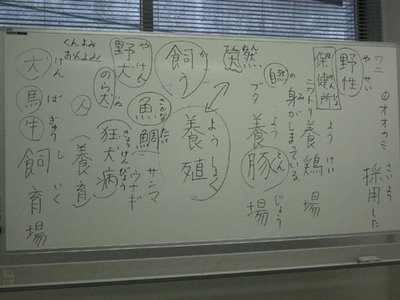 ワニ
のオオカミ
さいよう
採用した
やせい
野性
保健所
ニワトリ
ようけい
養鶏場
自然の身がしまっている。
ブタ
ようとんじょう
養豚場
か
飼う
ようしょく
(養殖)
さかな
魚
たい
鯛
サンマ
ウナギ
やけん
野犬
のら犬
狂犬病
人
(養育)
くんよみ
おんよみ
けん
犬
ばぎゅうしいく
馬牛飼育場